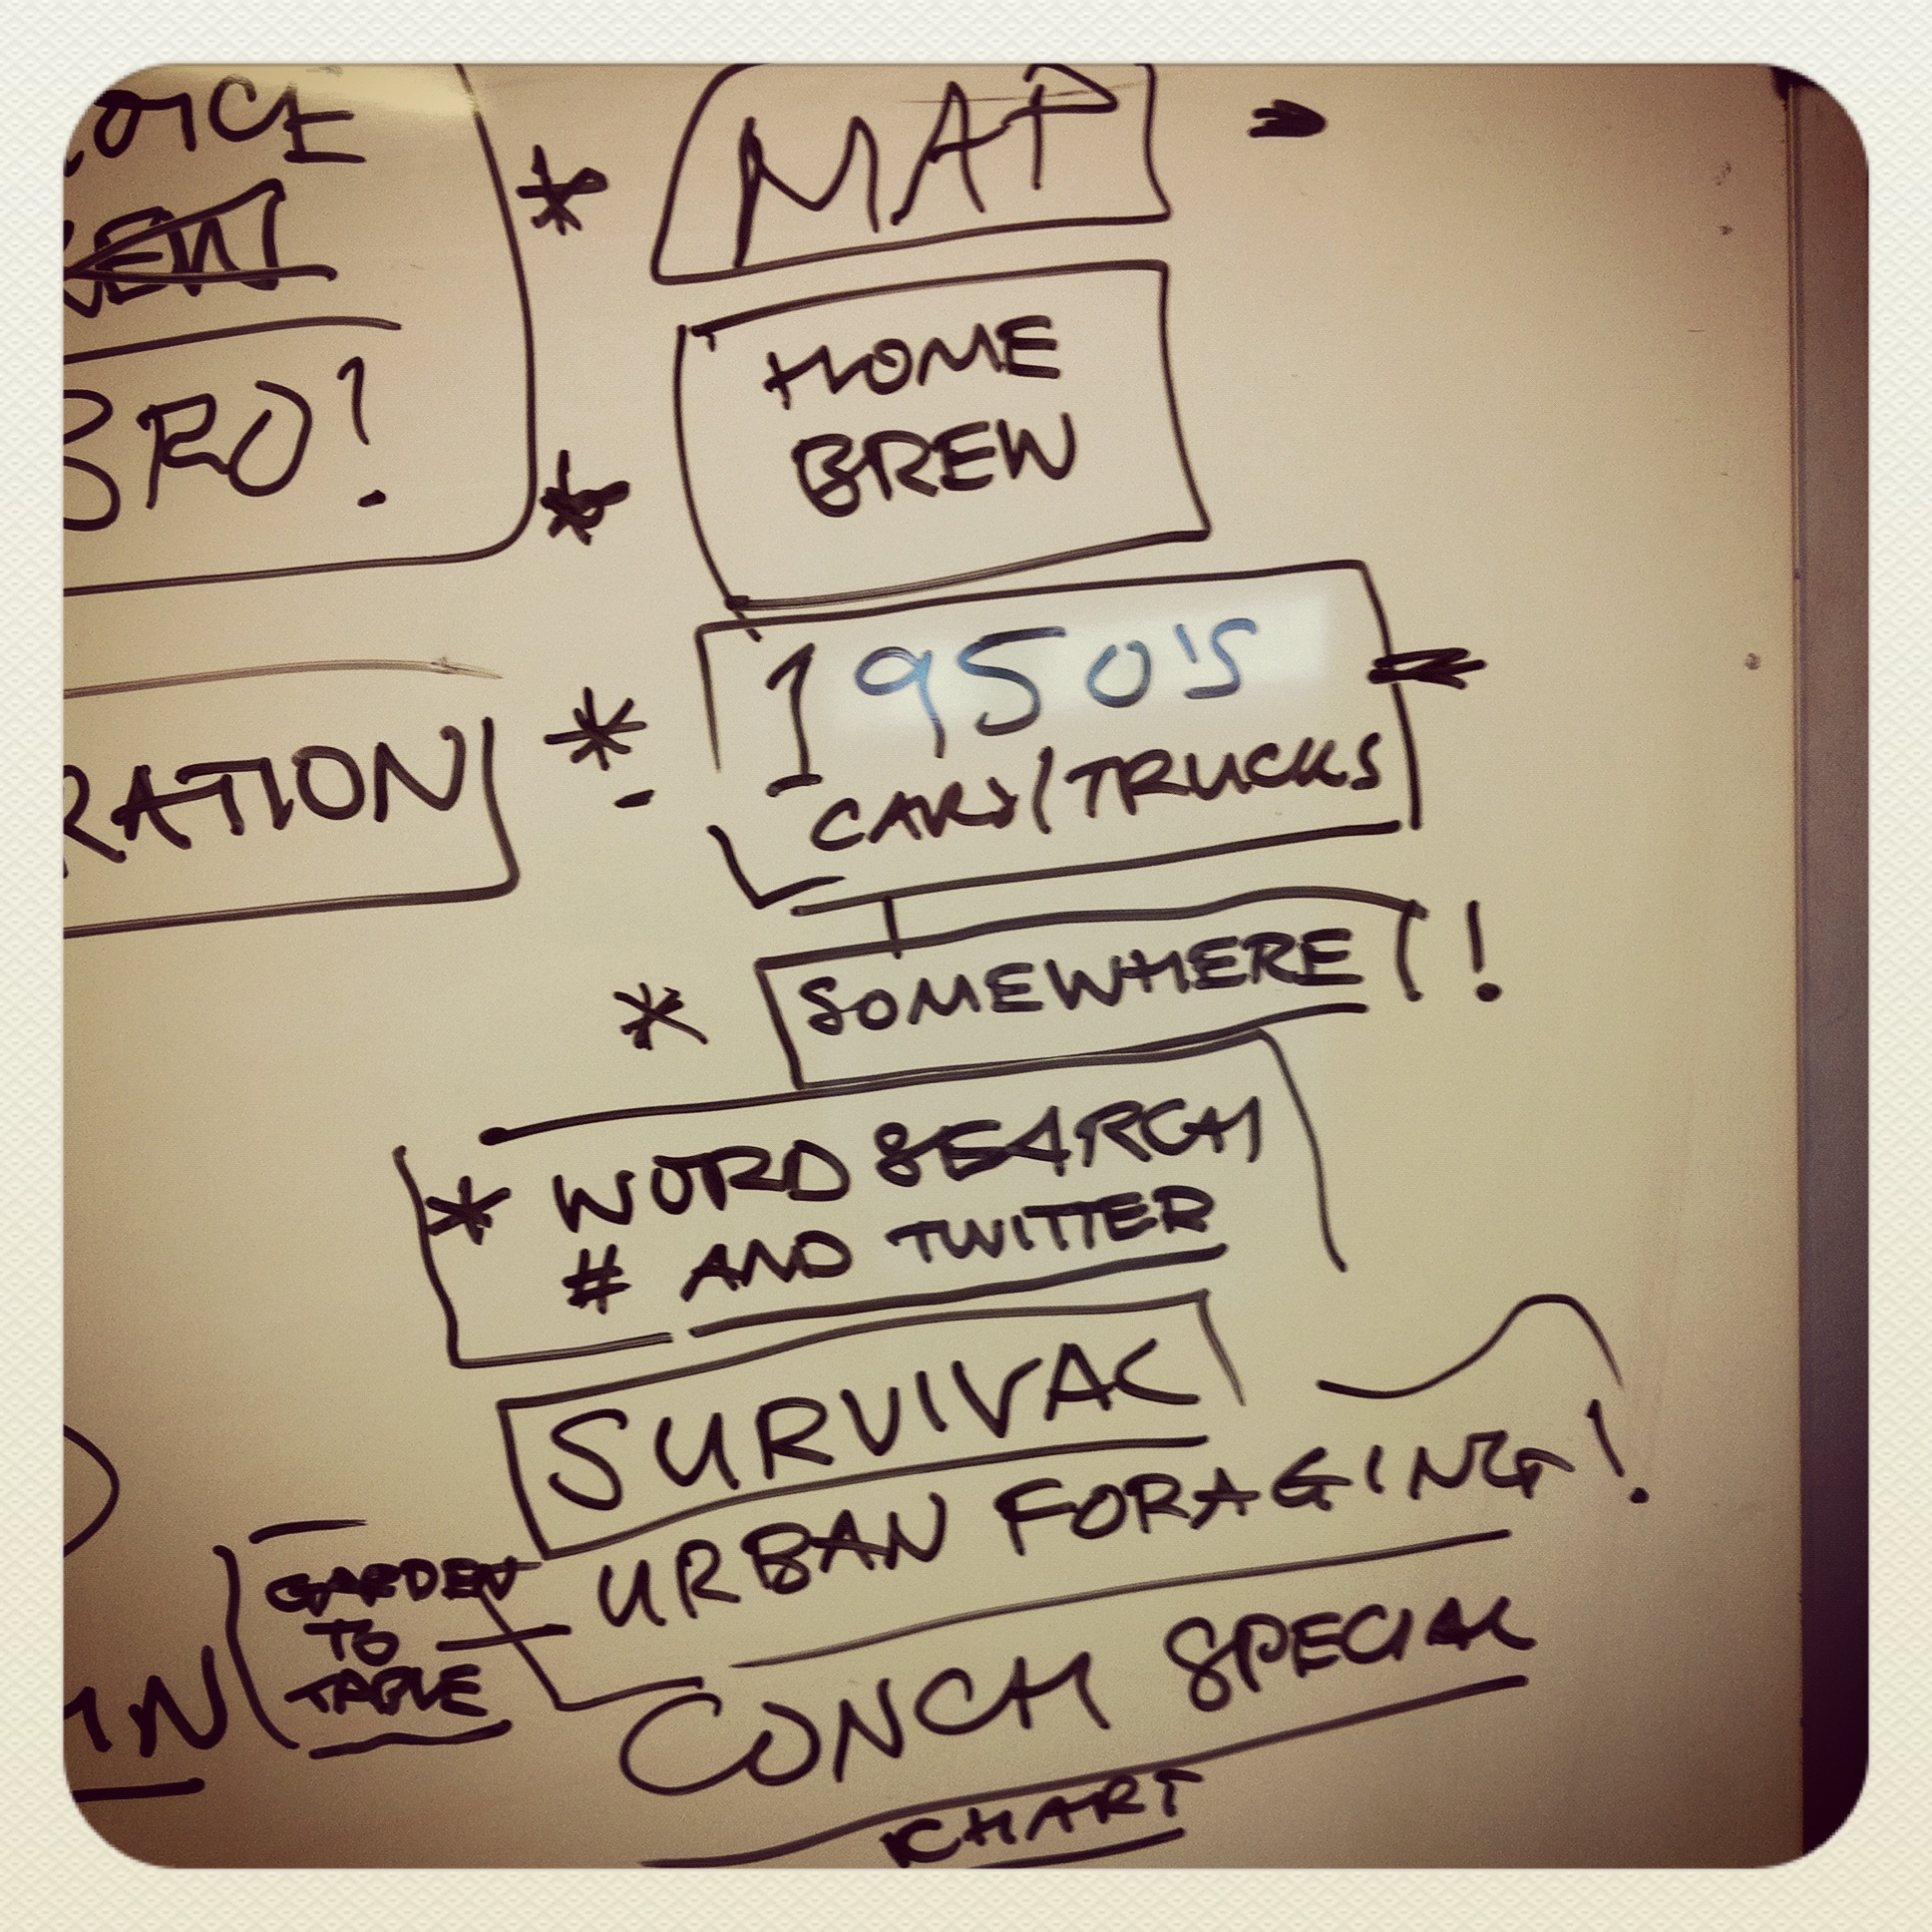 BRO!
RATION
* MAP
* HOME
BREW
* 1950'S
CARS/TRUCKS
* SOMEWHERE !
* WORD SEARCH
# AND TWITTER
SURVIVAL
URBAN FORAGING!
GARDEN
TO
TABLE
CONCH SPECIAL
CHART